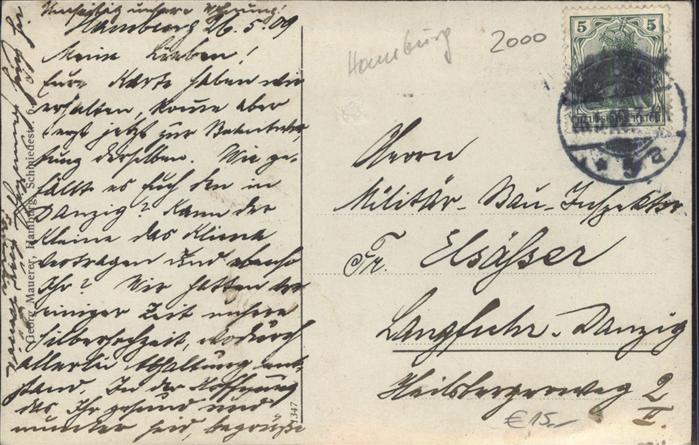 Hamburg 26.5.09
Meine Lieben!
Eure Karte haben wir
erhalten, komme aber
erst jetzt zur Beantwor-
tung derselben. Wie ge-
fällt es Euch denn in
Danzig? Kann der
Kleine das Klima
vertragen und ebenso
Ihr? Wir hatten vor
einiger Zeit unsere
Silberhochzeit, wodurch
allerlei Abhaltung ent-
stand. In der Hoffnung
das Ihr gesund und
munter seid, begrüße
Georg Mauerer, Hamburg, Schmiedestr.
1347
Hamburg
2000
5 5
DEUTSCHES REICH
Herrn
Militär-Bau-Inspektor
Fr. Elsäßer
Langfuhr-Danzig
Heilsbergerweg 2
II.
€ 15.-